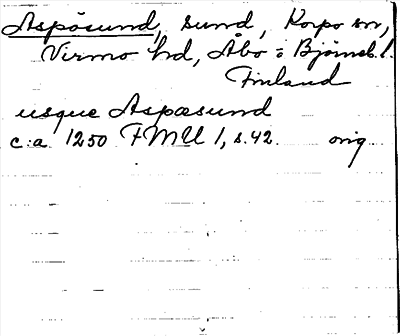 Aspösund, sund, Korpo sn,
Virmo hd, Åbo o Björneb. l.
Finland
usque Aspæsund
c:a 1250 FMU 1, s. 42. orig